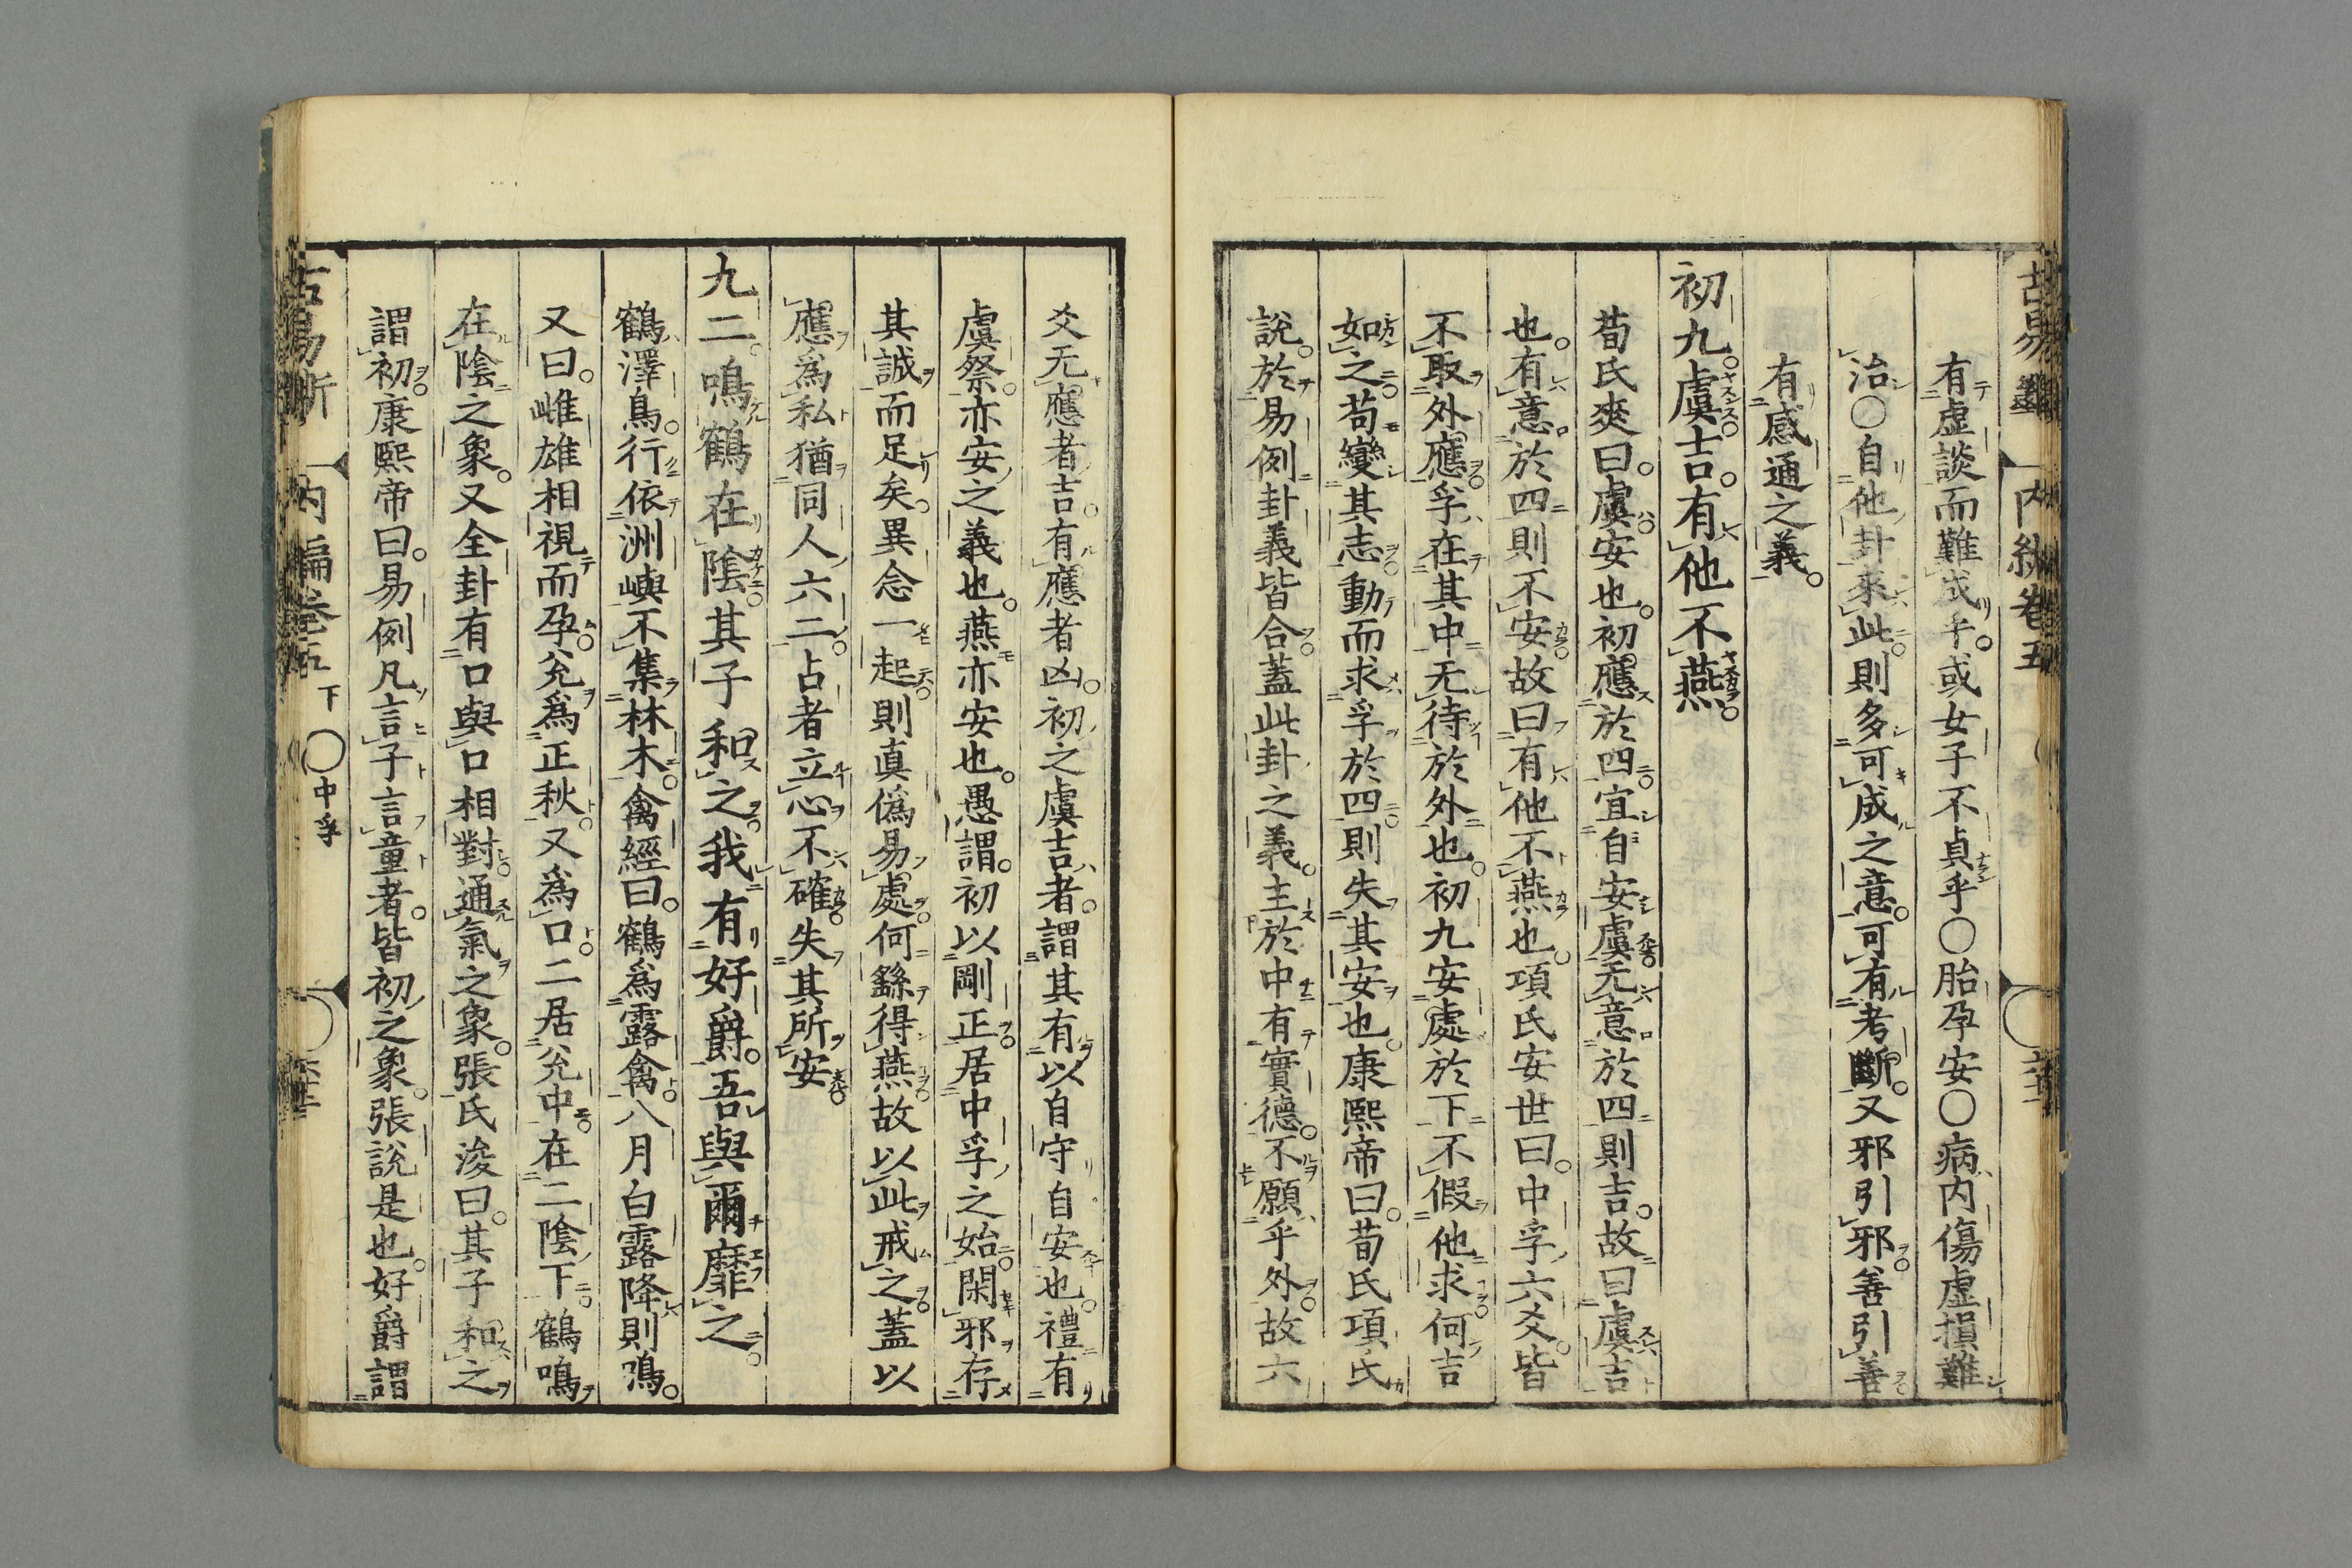 有虛談而難成乎。或女子不貞乎〇胎孕安〇病內傷虛損難
治〇自他卦來此則多可成之意。可有考斷。又邪引邪善引善
有感通之義。
初九。虞吉。有他不燕。
荀氏爽曰。虞安也。初應於四宜自安虞无意於四則吉。故曰虞吉
也。有意於四則不安故曰有他不燕也。項氏安世曰。中孚六爻。皆
不取外應孚在其中无待於外也。初九安處於下不假他求何吉
如之苟變其志動而求孚於四則失其安也。康熙帝曰。荀氏項氏
說。於易例卦義皆合。蓋此卦之義。主於中有實德。不願乎外故六
爻无應者吉。有應者凶。初之虞吉者。謂其有以自守自安也。禮有
虞祭。亦安之義也。燕亦安也。愚謂。初以剛正居中孚之始閑邪存
其誠而足矣。異念一起則真偽易處何繇得燕故以此戒之蓋以
應爲私猶同人六二。占者立心不確失其所安
九二。鳴鶴在陰。其子和之。我有好爵。吾與爾靡之。
鶴澤鳥。行依洲嶼不集林木。禽經曰。鶴爲露禽。八月白露降則鳴。
又曰。雌雄相視而孕。兊爲正秋。又爲口。二居兊中。在二陰下鶴鳴
在陰之象。又全卦有口與口相對。通氣之象。張氏浚曰。其子和之
謂初。康熙帝曰。易例凡言子言童者。皆初之象。張說是也。好爵謂
古易斷 內編卷五下 〇中孚